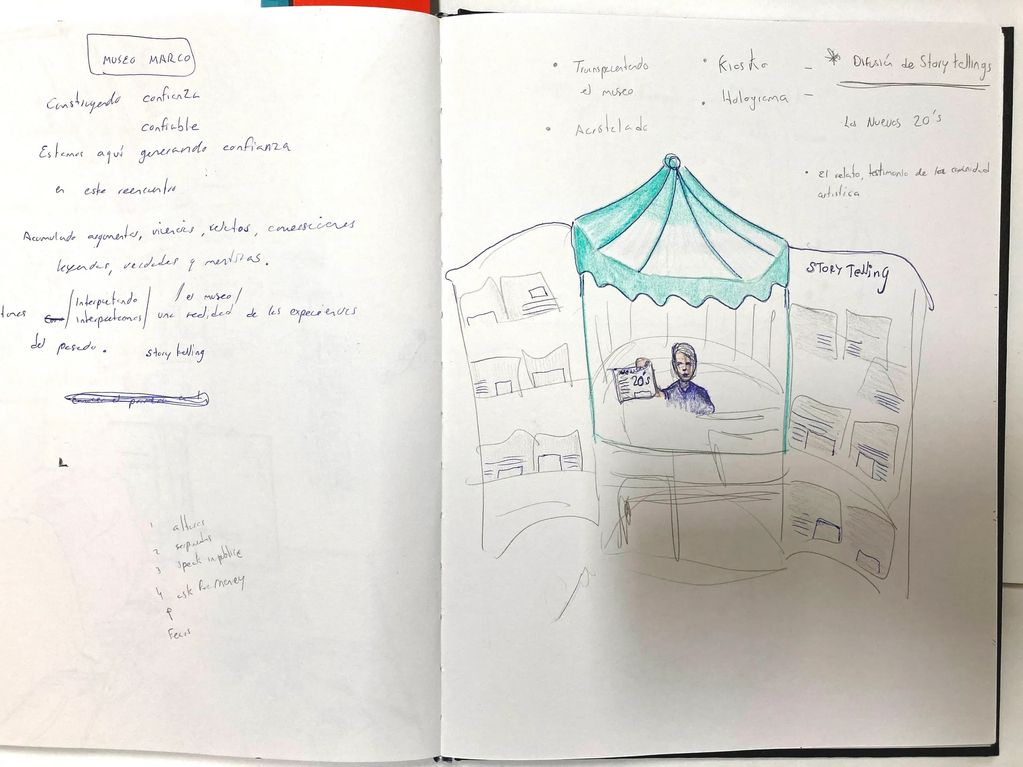 MUSEO MARCO
Construyendo confianza
confiable
Estamos aquí generando confianza
en este reencuentro
Acumulado argumentos, vivencias, relatos, conversaciones
leyendas, verdades y mentiras.
/Interpretando / el museo/
interpretaremos/ una realidad de las experiencias
del pasado. Story telling
1 alturas
2
3 speak in public
4 ask for money
Fears
• Transparentando
el museo
• Acristalado
• Kiosko –
• Holograma –
* Difusión de Story tellings
Los Nuevos 20's
• El relato, testimonio de la comunidad
artistica
STORY Telling
20's